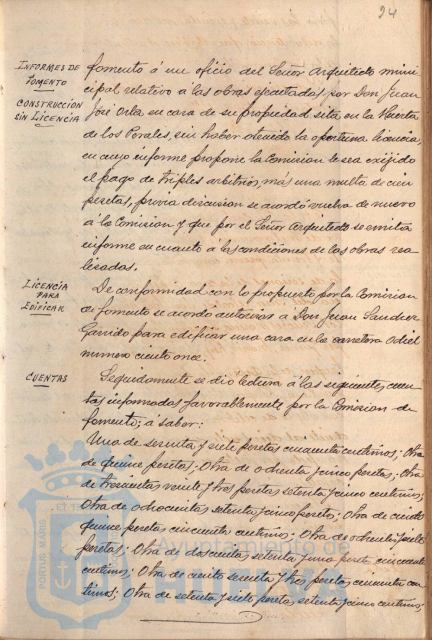 24
INFORMES DE
FOMENTO
CONSTRUCCION
SIN LICENCIA
fomento á un oficio del Señor Arquitecto muni-
cipal relativo a las obras ejecutadas por Don Juan
José Orta en casa de su propiedad sita en la Huerta
de los Perales, sin haber obtenido la oportuna licencia,
en cuyo informe propone la Comision le sea exigido
el pago de triples arbitrios, más una multa de cien
pesetas, previa discusion se acordó vuelva de nuevo
a la Comision y que por el Señor Arquitecto se emita
informe en cuanto á las condiciones de las obras rea-
lisadas.
LICENCIA
PARA
EDIFICAR
De conformidad con lo propuesto por la Comision
de fomento se acordo autorizar a Don Juan Sanchez
Garrido para edificar una casa en la carretera Odiel
numero ciento once.
CUENTAS
Seguidamente se dio lectura á las siguientes cuen-
tas informadas favorablemente por la Comision de
fomento, á saber:
Una de sesenta y siete pesetas cincuenta centimos; Otra
de quince pesetas; Otra de ochenta y cinco pesetas; Otra
de trescientas veinte y tres pesetas setenta y cinco centimos;
Otra de ochocientas setenta y cinco pesetas; Otra de ciento
quince pesetas cincuenta centimos; Otra de ochenta
pesetas; Otra de doscientas setenta y una peseta cincuenta
centimos; Otra de ciento sesenta y tres pesetas cincuenta cen-
timos; Otra de setenta y siete pesetas, setenta y cinco centimos;
PORTUS MARIS
Ayuntamiento de
HUELVA